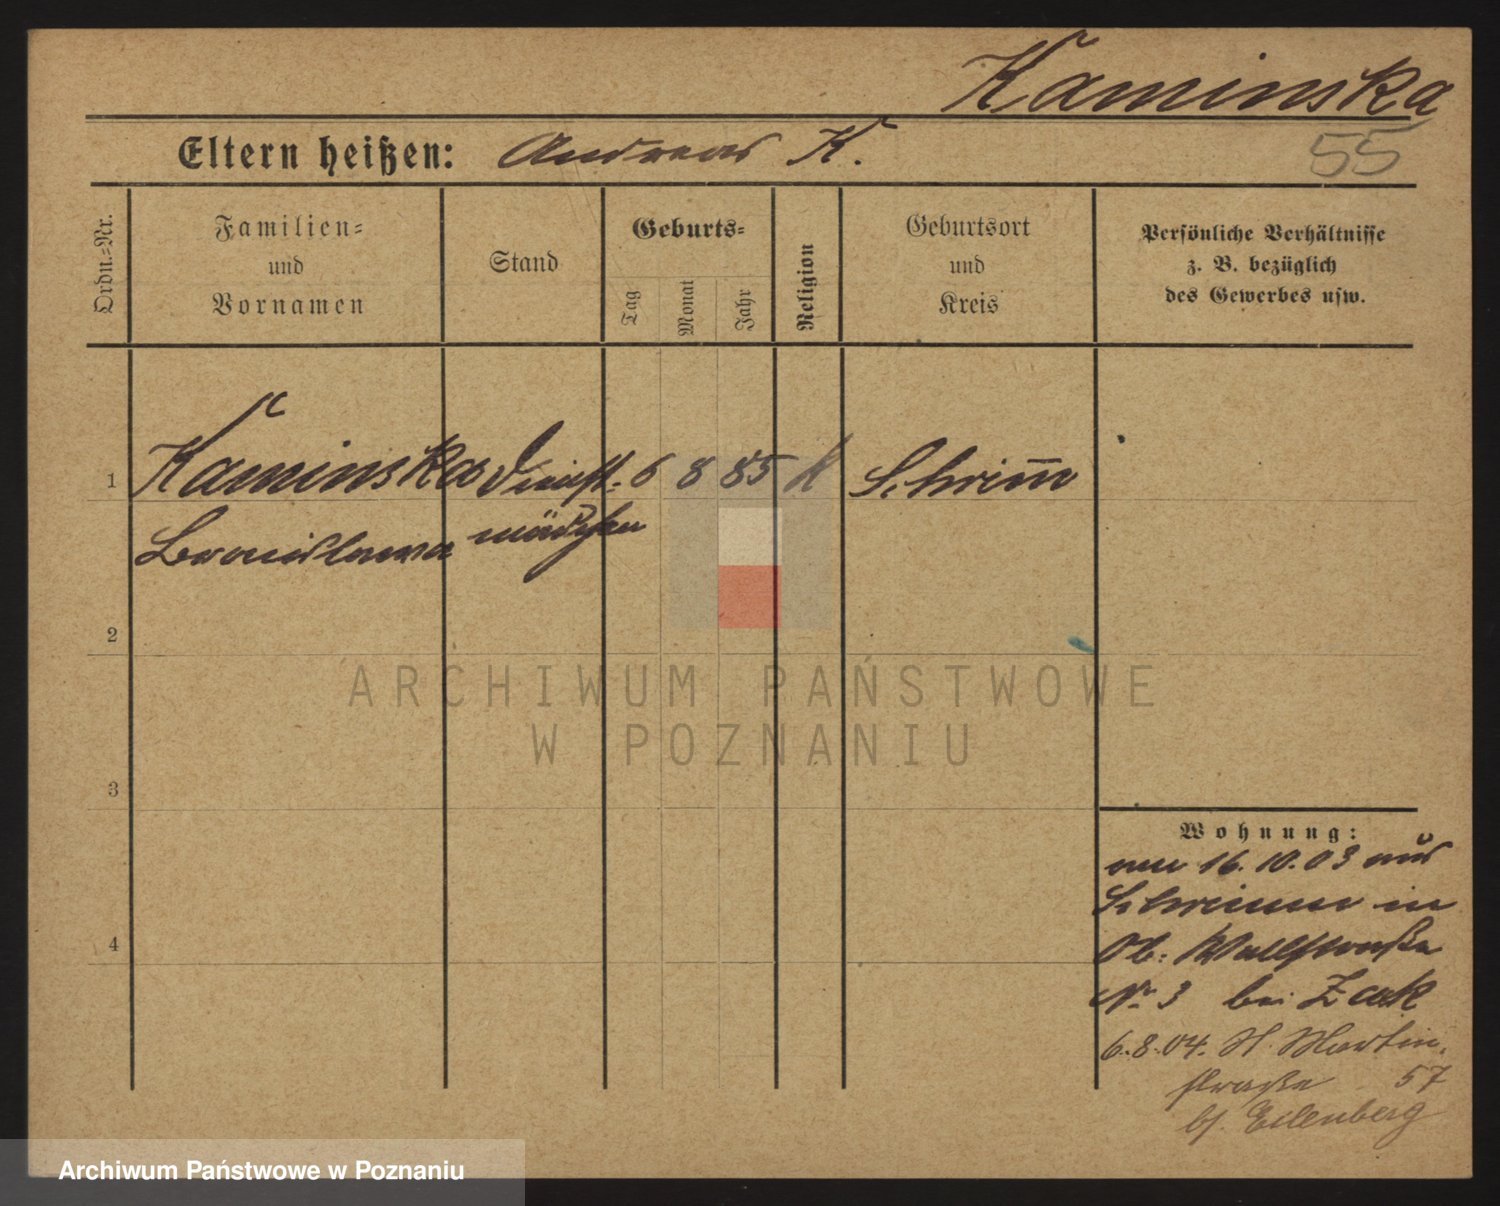 Kaminska
55
Eltern heißen: Andreas K.
Ordn.=Nr.
Familien=
und
Vornamen
Stand
Geburts=
Tag
Monat
Jahr
Religion
Geburtsort
und
Kreis
Persönliche Verhältnisse
z. B. bezüglich
des Gewerbes usw.
1 Kaminska Dienst- 6 8 85 K Schrim̅
Bronislawa mädchen
2
3
4
Wohnung:
16.10.03 aus
Schrimm in
Ob: Wallstraße
No 3 bei Zak
6.8.04. St. Martin-
straße 57
b/. Eilenberg
ARCHIWUM PAŃSTWOWE
W POZNANIU
Archiwum Państwowe w Poznaniu